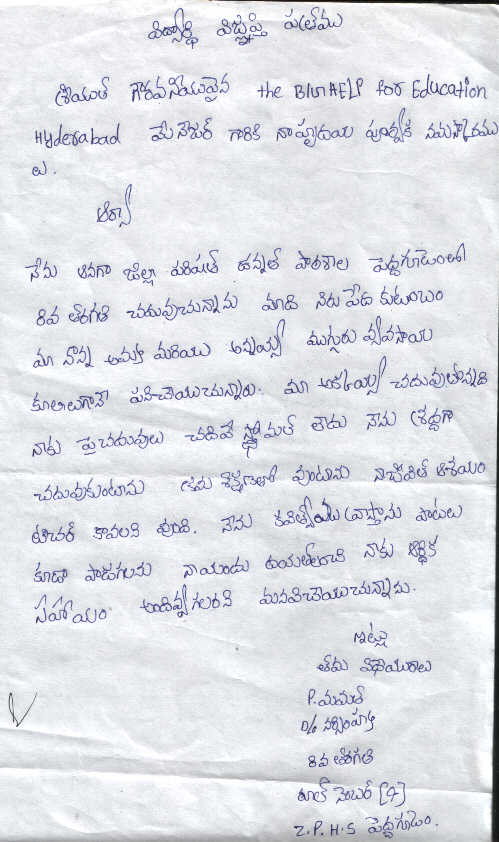 విద్యార్థి విజ్ఞప్తి పత్రము
శ్రీయుత గౌరవనీయులైన the Blu HELP for Education
Hyderabad మేనేజర్ గారికి నా హృదయ పూర్వక నమస్కారము
లు.
ఆర్యా
నేను అనగా జిల్లా పరిషత్ ఉన్నత పాఠశాల పెద్దగూడెంలో
8వ తరగతి చదువుచున్నాను మాది నిరుపేద కుటుంబం
మా నాన్న అమ్మ మరియు అన్నయ్య ముగ్గురు వ్యవసాయ
కూలీలుగానే పనిచేయుచున్నారు. మా అక్కయ్య చదువుతోన్నది
నాకు పై చదువులు చదివే స్థోమత లేదు నేను శ్రద్ధగా
చదువుకుంటాను క్రమ శిక్షణతో వుంటాను నా జీవిత ఆశయం
టీచర్ కావాలని వుంది. నేను కవిత్వము వ్రాస్తాను పాటలు
కూడా పాడగలను నాయందు దయతలచి నాకు ఆర్థిక
సహాయం అందివ్వగలరని మనవిచేయుచున్నాను.
ఇట్లు
తమ విధేయురాలు
P. మమత
D/o నర్సింహ
8వ తరగతి
రూల్ నెంబర్ [9]
Z.P.H.S పెద్దగూడెం.